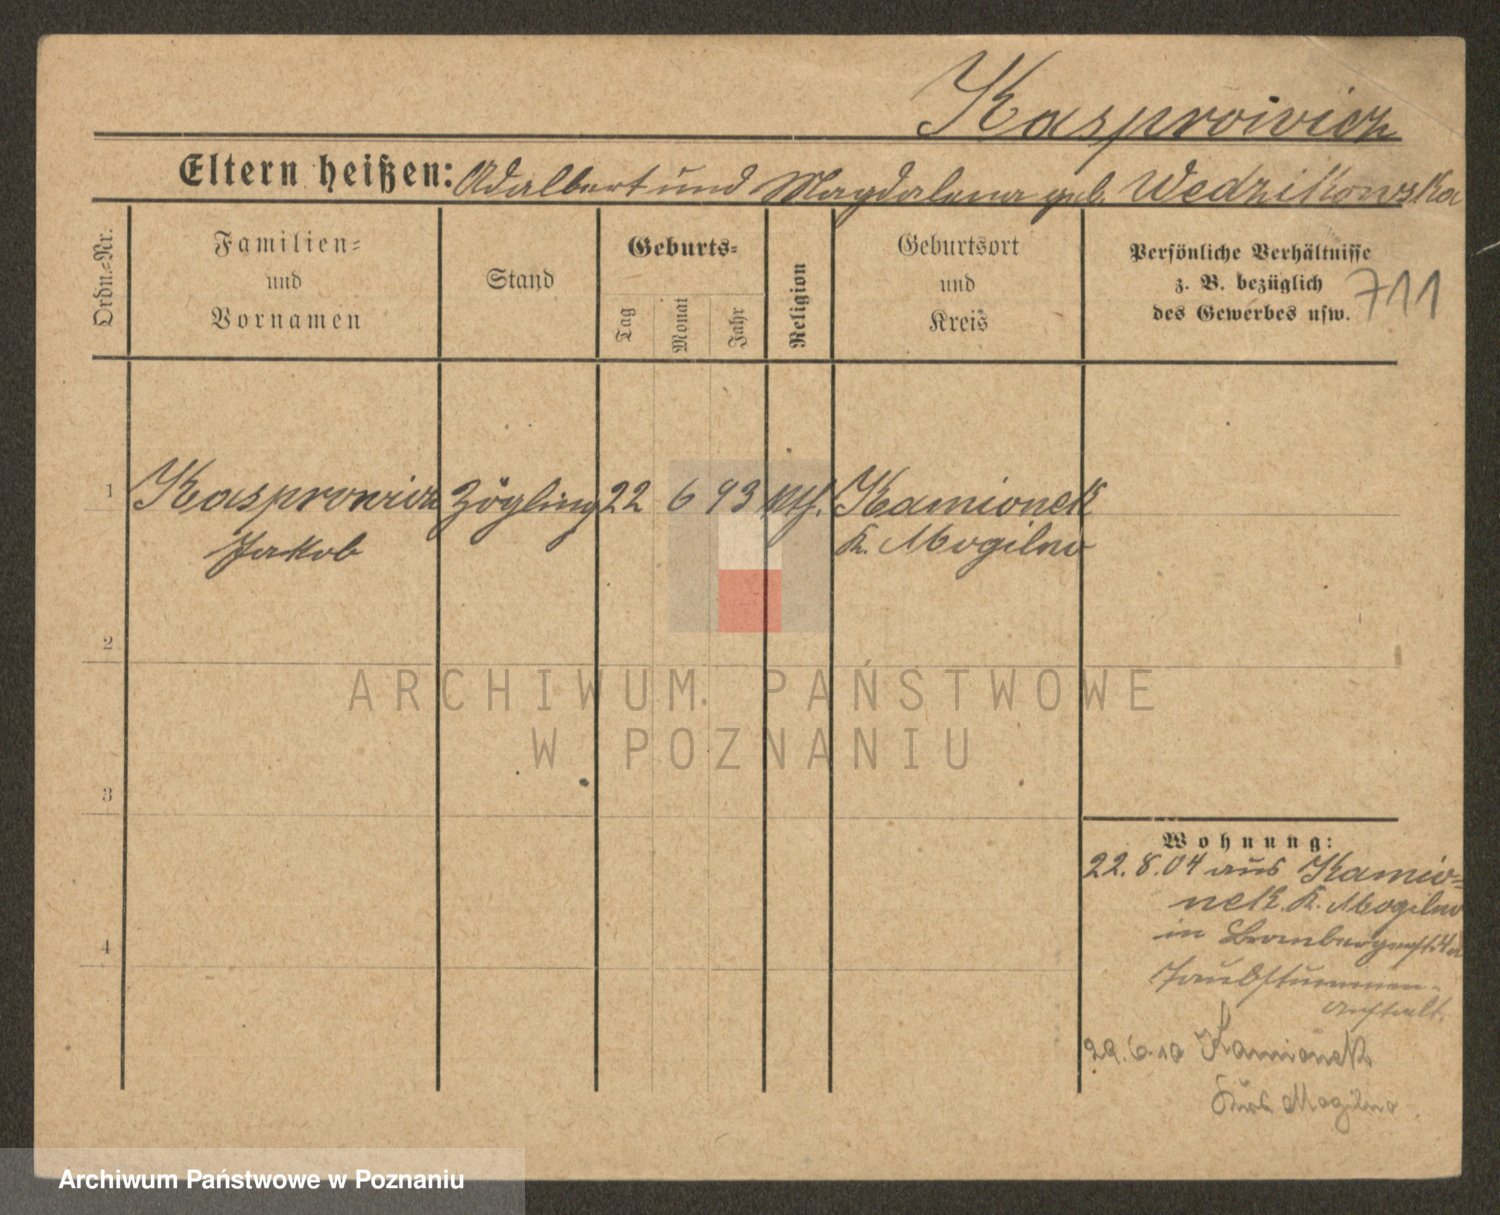 Kasprowicz
Eltern heißen: Adalbert und Magdalena geb. Wedzikowska
Ordn.=Nr.
Familien=
und
Vornamen
Stand
Geburts=
Tag
Monat
Jahr
Religion
Geburtsort
und
Kreis
Persönliche Verhältnisse
z. B. bezüglich
des Gewerbes usw.
711
1 Kasprowicz Zögling 22 6 93 kth. Kamionek
Jakob K. Mogilno
2
3
4
Wohnung:
22.8.04 aus Kamio=
nek K. Mogilno
in Brombergerst. 4a
Taubstummen-
anstalt.
29.6.10 Kamionek
Kreis Mogilno
ARCHIWUM PAŃSTWOWE
W POZNANIU
Archiwum Państwowe w Poznaniu